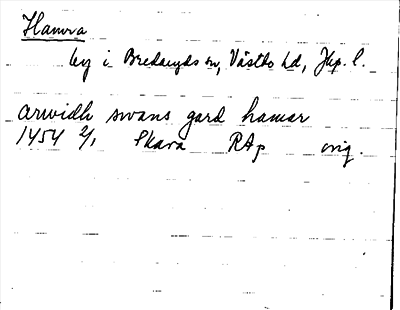 Hamra
by i Bredaryds sn, Västbo hd, Jkp. l.
arwidh swans gard hamar
1454 2/1 Skara RAp orig.